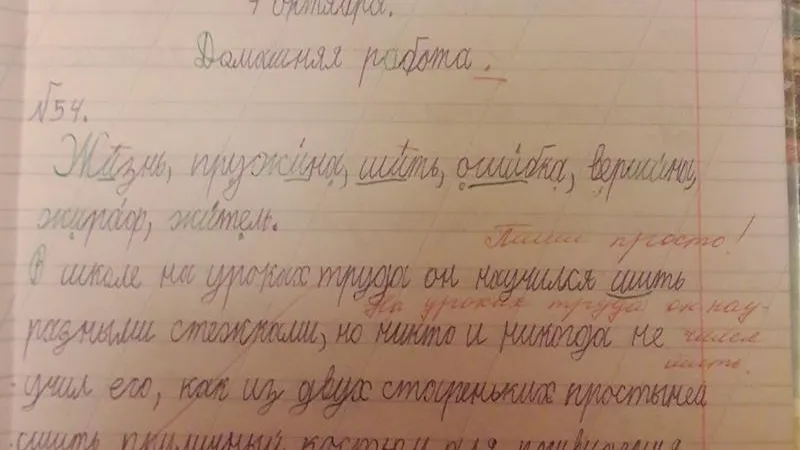 7 октября.
Домашняя работа.
№54.
Жизнь, пружина, шить, ошибка, вершина,
жираф, житель.
Пиши просто!
В школе на уроках труда он научился шить
На уроках труда он нау-
разными стежками, но никто и никогда не
чился
шить.
учил его, как из двух стареньких простыней
сшить приличный костюм для привидения